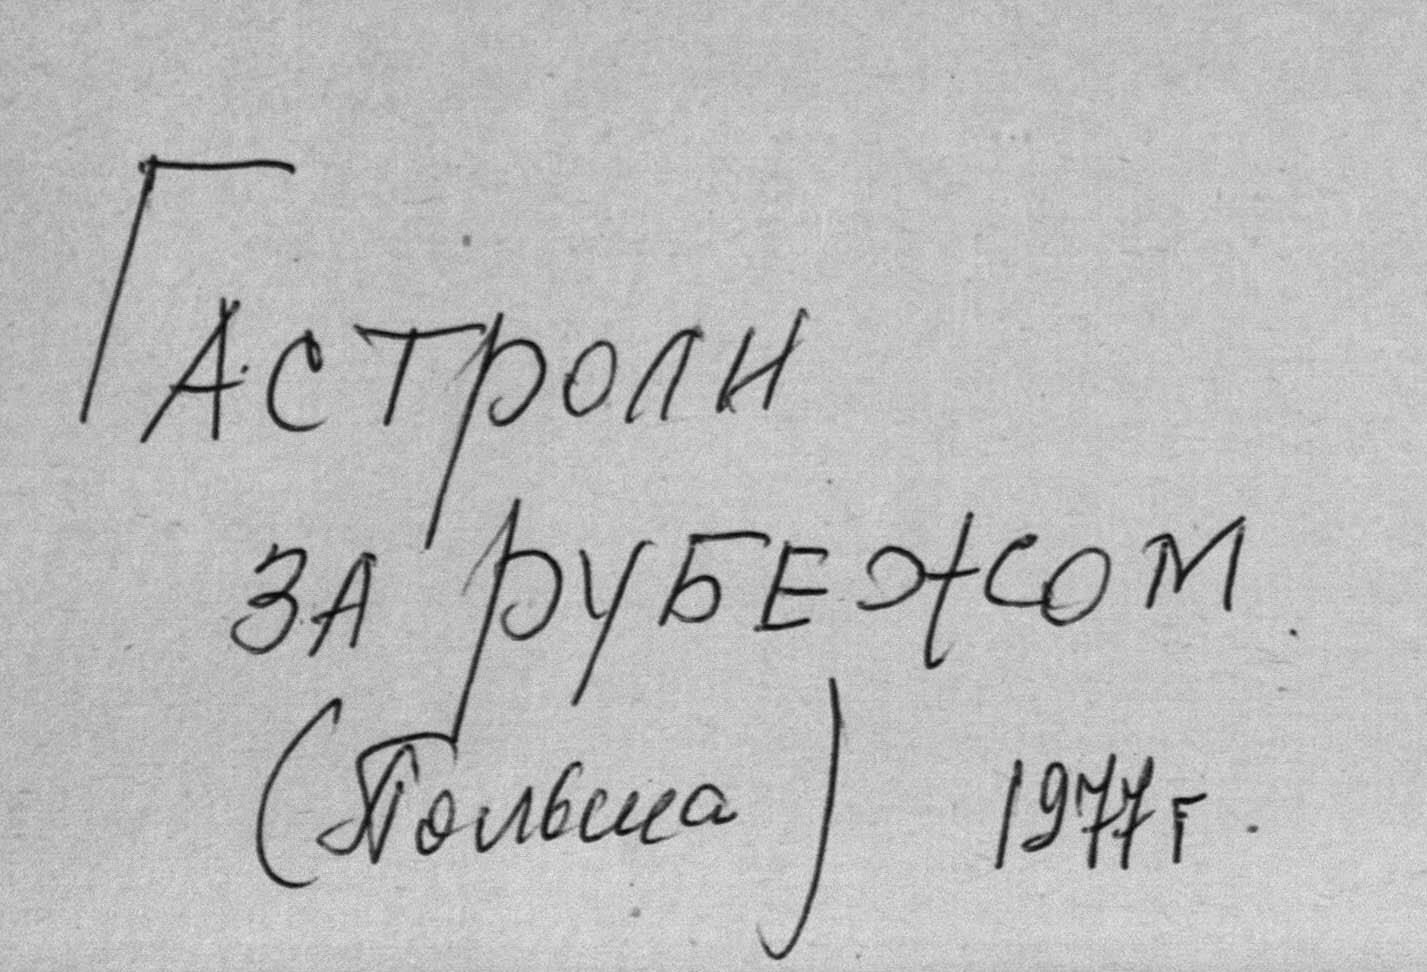 Гастроли
за рубежом.
(Польша) 1977 г.